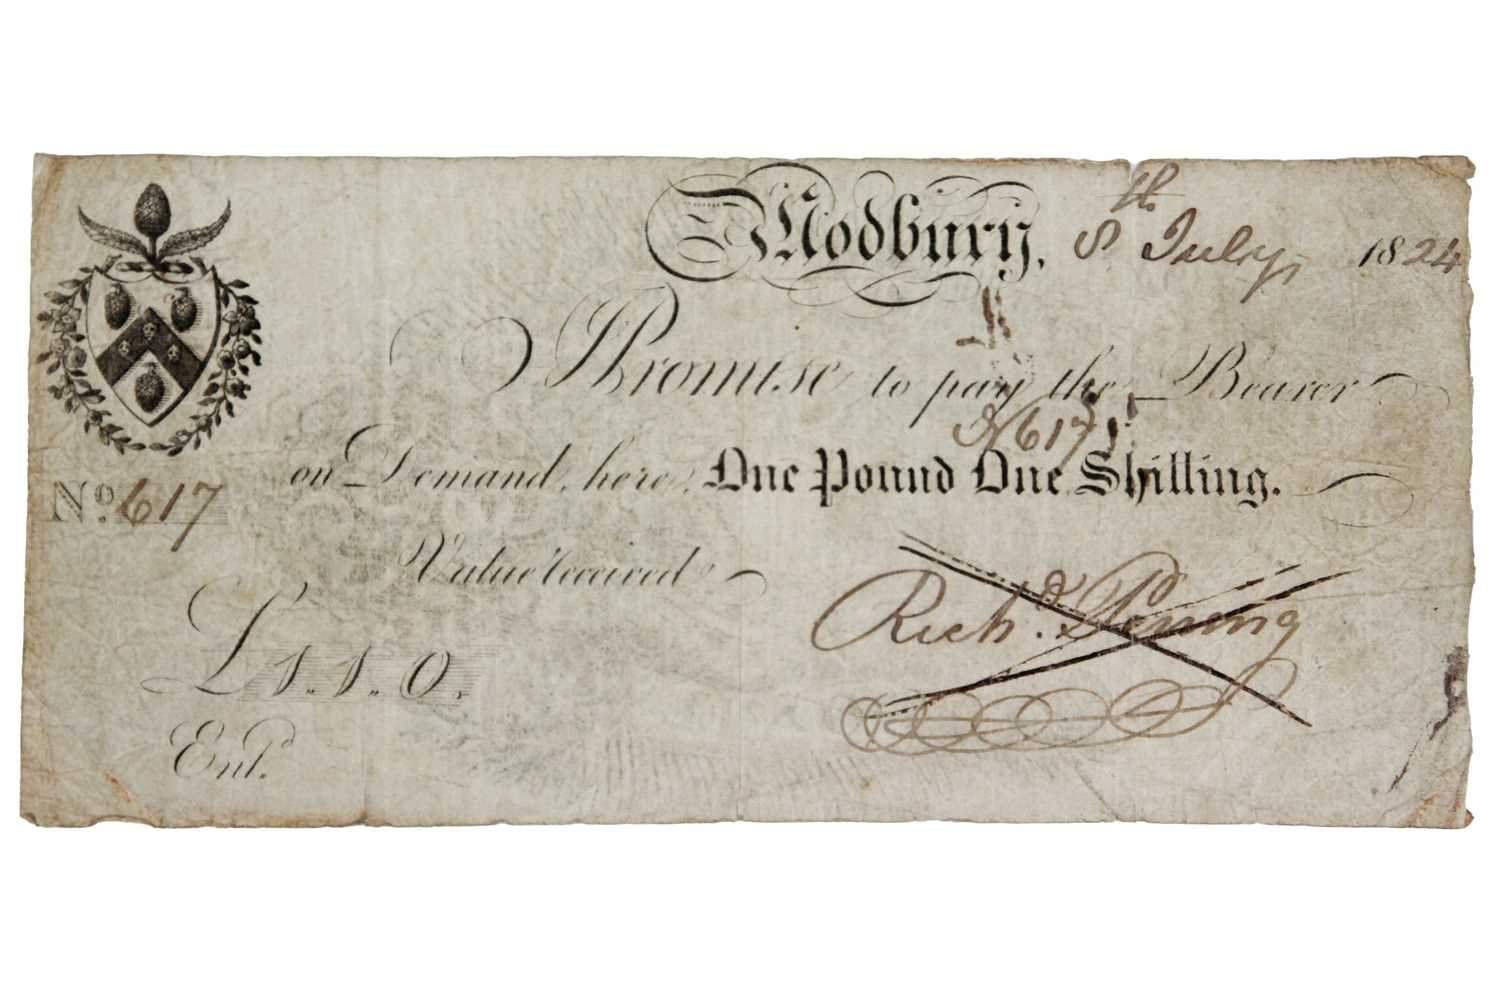 Modbury, 8th July, 1824
I Promise to pay the Bearer
617
on Demand, here, One Pound One Shilling.
No. 617
Value received
Richd. Perring
£1.,1.,0.
Entd.